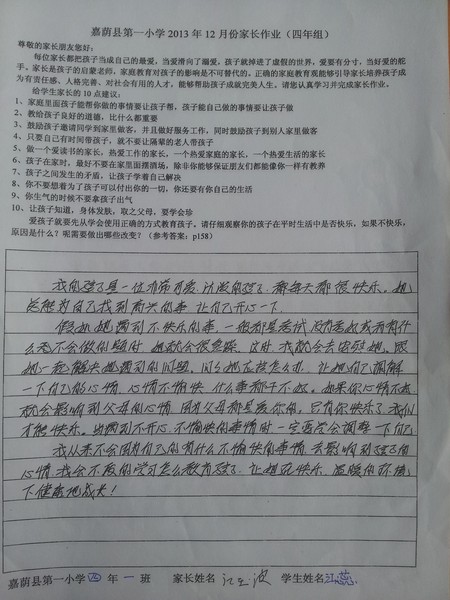 嘉荫县第一小学2013年12月份家长作业（四年组）
尊敬的家长朋友您好：
每位家长都把孩子当成自己的最爱，当爱滑向了溺爱，孩子就掉进了虚假的世界，爱要有分寸，当好爱的舵
手。家长是孩子的启蒙老师，家庭教育对孩子的影响是不可替代的。正确的家庭教育观能够引导家长培养孩子成
为有责任感、人格完善、对社会有用的人才，能够帮助孩子成就完美人生。请您认真学习并完成家长作业。
给学生家长的10点建议：
1、家庭里面孩子能帮你做的事情要让孩子帮，孩子能自己做的事情要让孩子做
2、教给孩子良好的道德，比什么都重要
3、鼓励孩子邀请同学到家里做客，并且做好服务工作，同时鼓励孩子到别人家里做客
4、只要自己有时间带孩子，就不要让隔辈的老人带孩子
5、做一个爱读书的家长，热爱工作的家长，一个热爱家庭的家长，一个热爱生活的家长
6、孩子在家时，最好不要在家里面摆酒场，除非你能够保证朋友们都能像你一样有教养
7、孩子之间发生的矛盾，让孩子学着自己解决
8、你不要想着为了孩子可以付出你的一切，你还要有你自己的生活
9、你生气的时候不要拿孩子出气
10、让孩子知道，身体发肤，取之父母，要学会珍
爱孩子就要先从学会使用正确的方式教育孩子。请仔细观察你的孩子在平时生活中是否快乐，如果不快乐，
原因是什么？呢需要做出哪些改变？（参考答案：p158）
我的孩子是一位 可爱、活泼的孩子，都每天都很快乐，她
总能为自己找到高兴的事，让自己开心一下。
假如她遇到不快乐的事，一般都是考试没有考好或者有什
么题不会做的题时，她就会很 ，这时，我就会去安慰她，跟
她一起解决她遇到的问题，问她应该怎么办，让她自己调解
一下自己的心情，心情不愉快，什么事都干不好，如果你心情不好
就会影响到父母的心情，因为父母都是爱你的，只有你快乐了我们
才能快乐。当遇到不开心、不愉快的事情时一定要学会调整一下自己
我从来不会因为自己的有什么不愉快的事情去影响到孩子的
心情，我会不断的学习怎么教育孩子，让她在快乐、温暖的环境
下健康地成长！
嘉荫县第一小学 四 年 一 班 家长姓名 江 波 学生姓名 江蕊